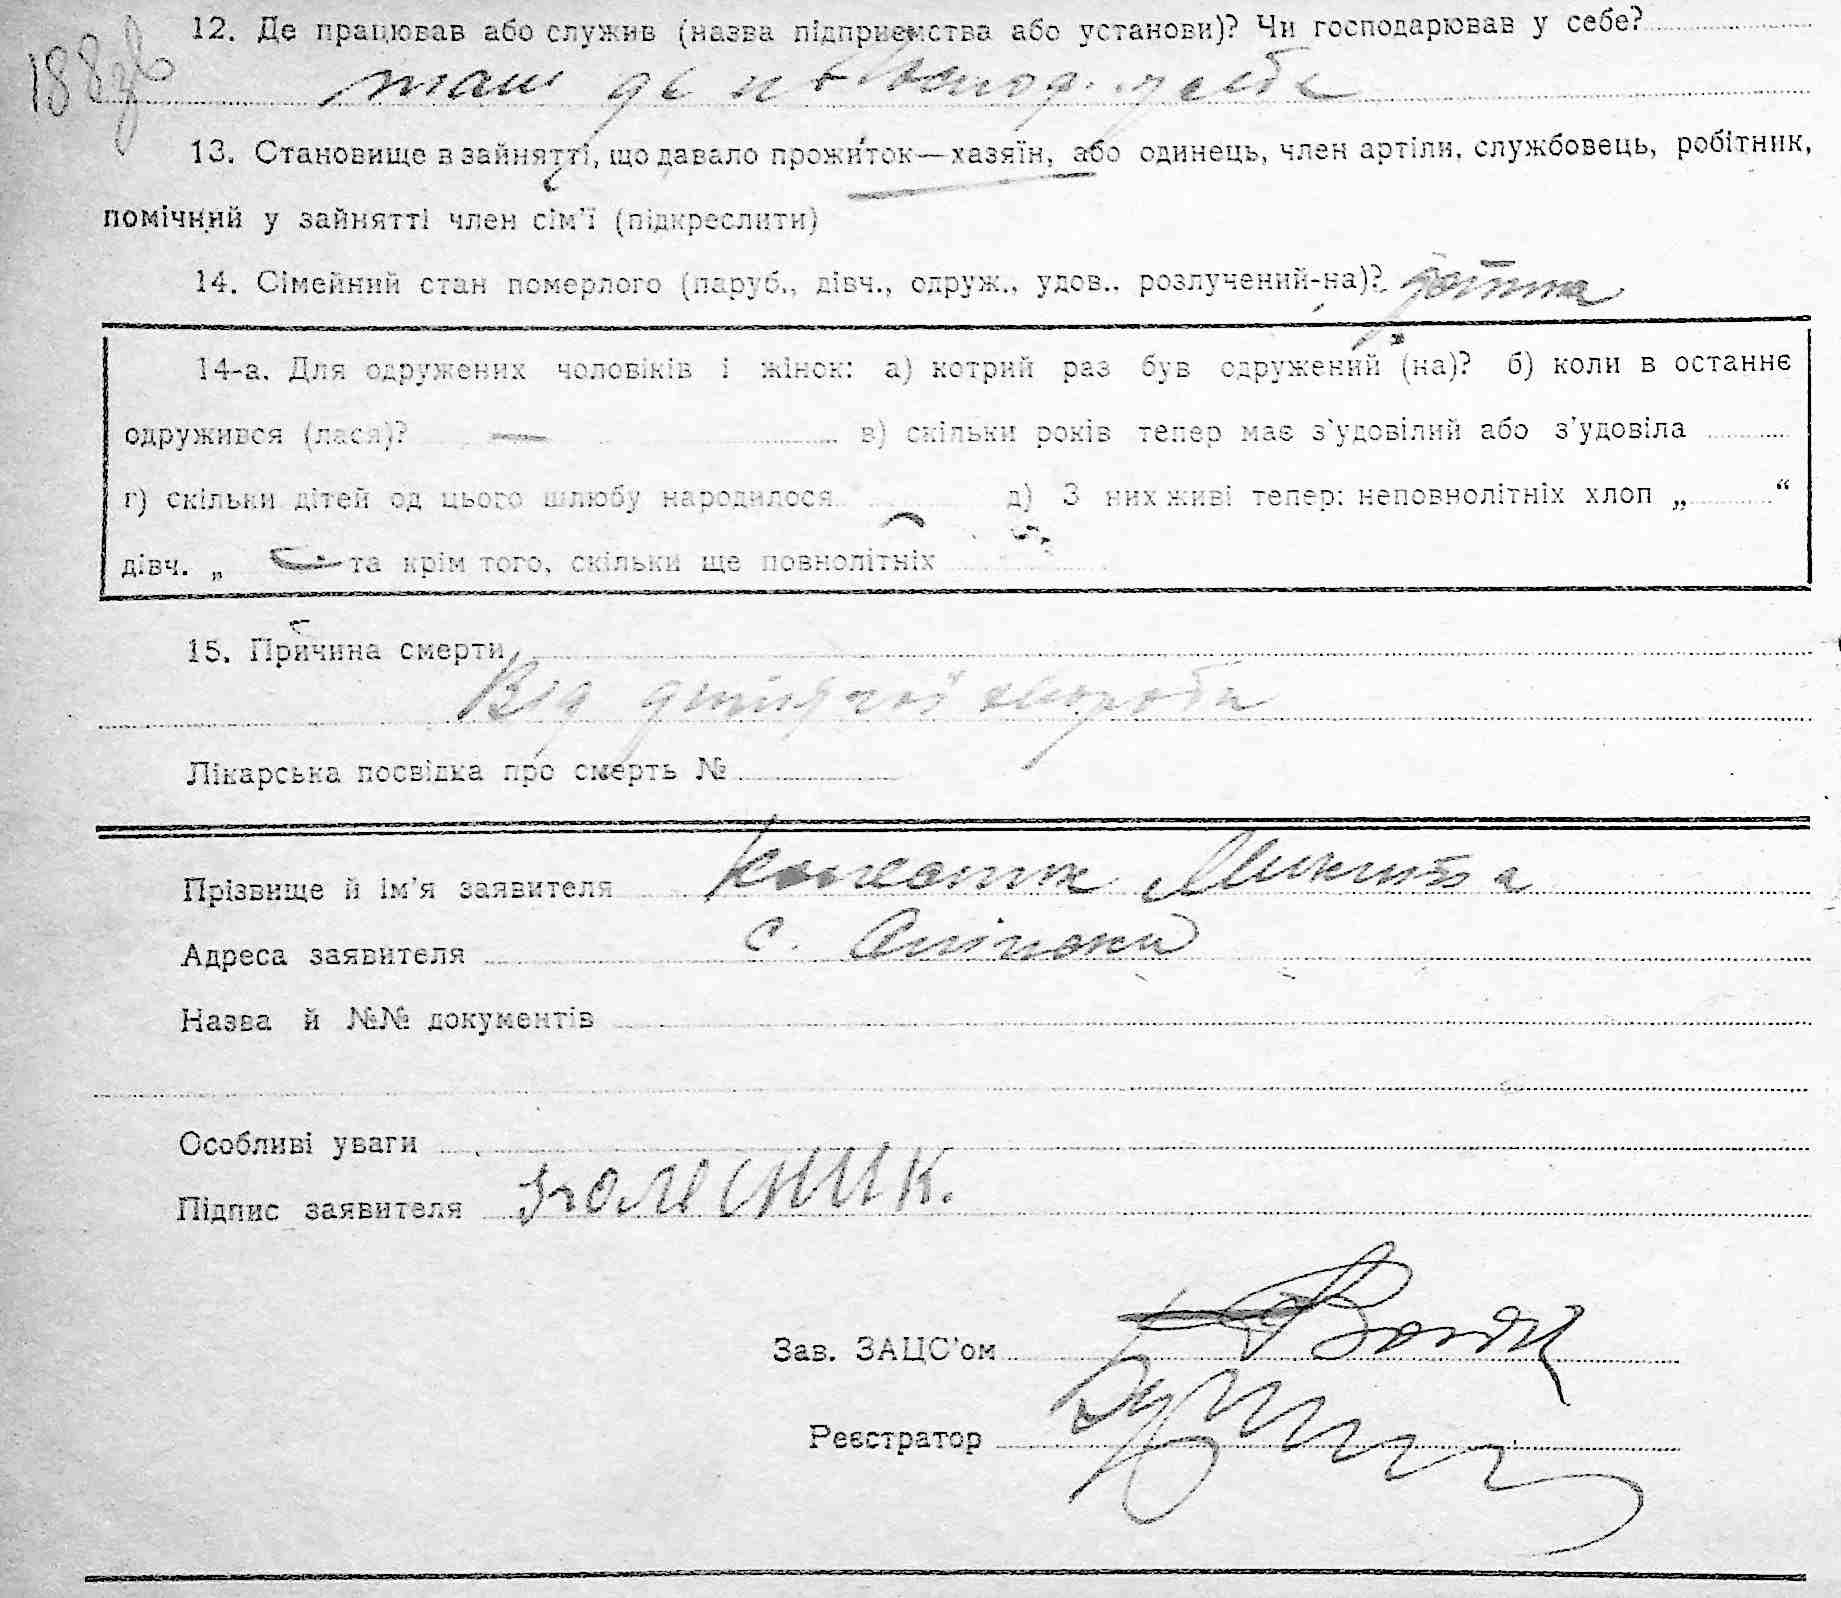 188 зв
12. Де працював або служив (назва підприємства або установи)? Чи господарював у себе?
господ. у себе
13. Становище в зайнятті, що давало прожиток—хазяїн, або одинець, член артіли, службовець, робітник,
помічний у зайнятті член сім'ї (підкреслити)
14. Сімейний стан померлого (паруб., дівч., одруж., удов., розлучений-на)? дитина
14-а. Для одружених чоловіків і жінок: а) котрий раз був одружений (на)? б) коли в останнє
одружився (лася)? — в) скільки років тепер має з'удовілий або з'удовіла
г) скільки дітей од цього шлюбу народилося д) З них живі тепер: неповнолітніх хлоп „ “
дівч. „ та крім того, скільки ще повнолітніх
15. Причина смерти
Від дитячої хвороби
Лікарська посвідка про смерть №
Прізвище й ім'я заявителя Микита
Адреса заявителя с.
Назва й №№ документів
Особливі уваги
Підпис заявителя Колесник.
Зав. ЗАЦС'ом
Реєстратор